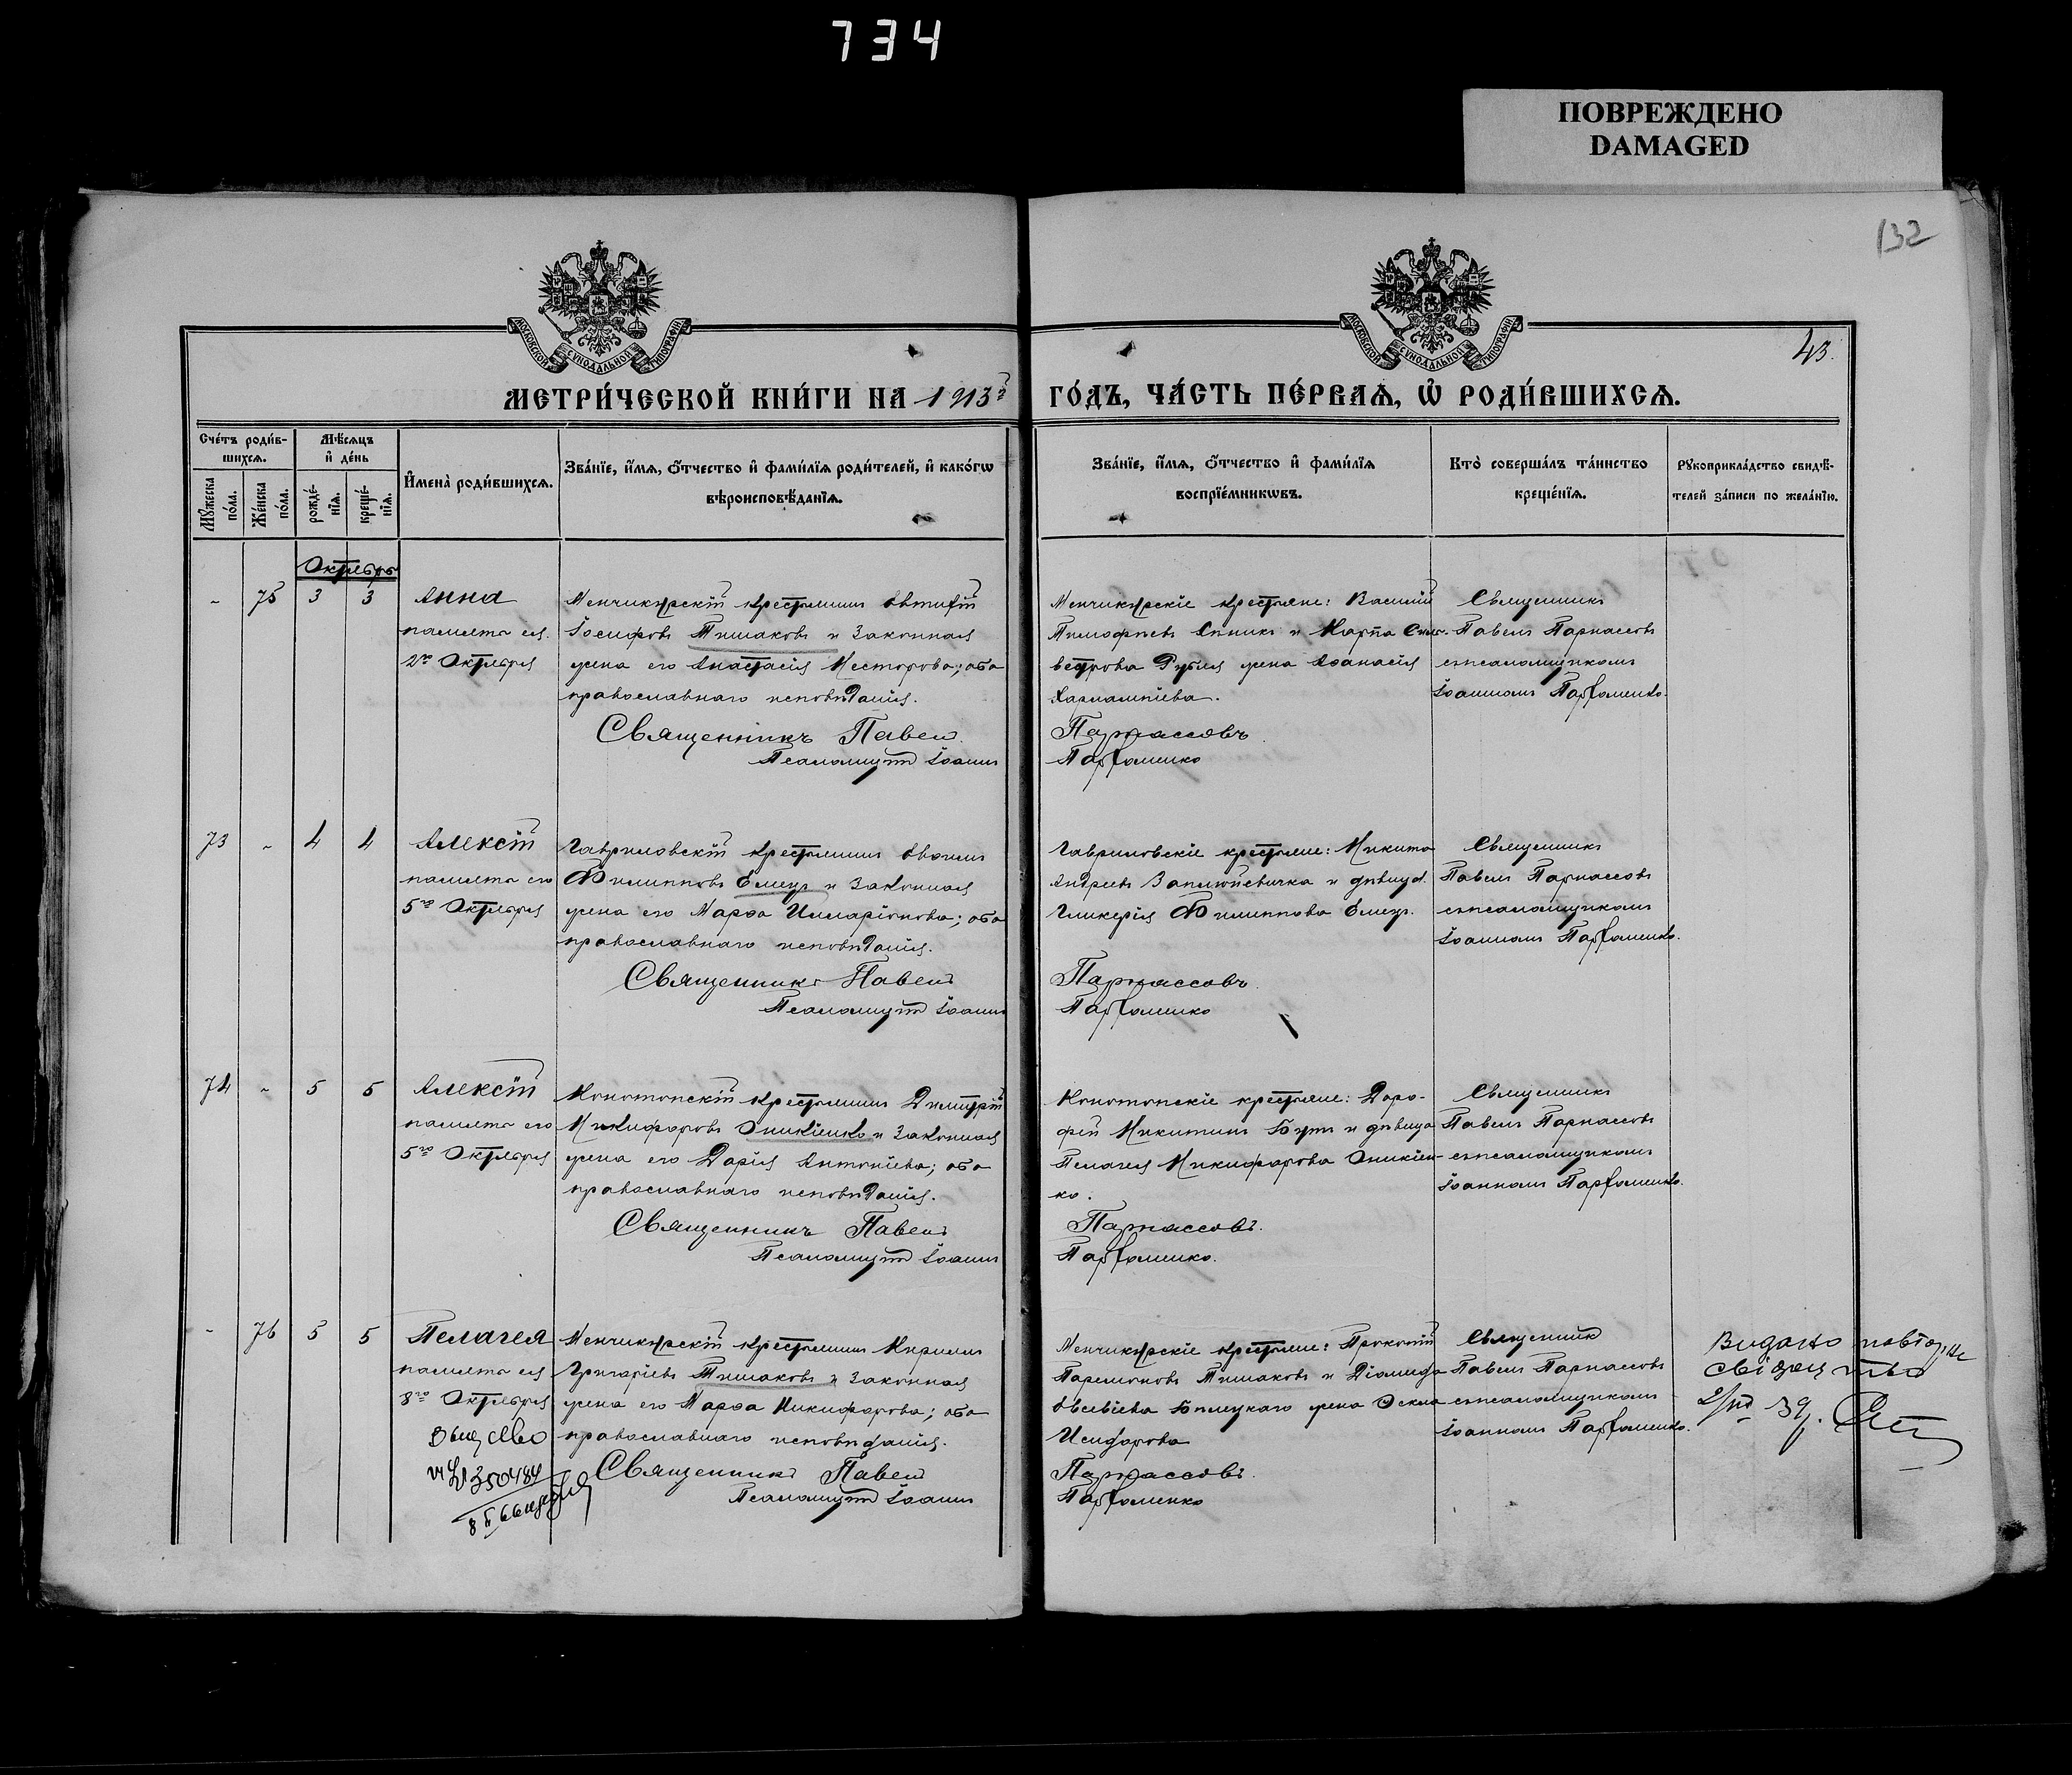 734
ПОВРЕЖДЕНО
DAMAGED
132
МОСКОВСКОЙ СѴНОДАЛЬНОЙ ТИПОГРАФІИ
МОСКОВСКОЙ СѴНОДАЛЬНОЙ ТИПОГРАФІИ
43.
МЕТРИ́ЧЕСКОЙ КНИ́ГИ НА 1913й
ГО́ДЪ, ЧА́СТЬ ПЕ́РВАѦ, Ѡ҆ РОДИ́ВШИХСѦ.
Сче́тъ роди́в-
шихсѧ.
Мѣ́сѧцъ
и҆ де́нь
Мꙋ́жеска по́ла.
Же́нска по́ла.
рожде́-
нїѧ.
креще́-
нїѧ.
И҆мена̀ роди́вшихсѧ.
Зва́нїе, и҆́мѧ, ѻ҆́тчество и҆ фами́лїѧ роди́телей, и҆ како́гѡ
вѣроисповѣ́данїѧ.
Зва́нїе, и҆́мѧ, ѻ҆́тчество и҆ фами́лїѧ
воспрїе́мникѡвъ.
Кто̀ соверша́лъ та́инство
креще́нїѧ.
Рꙋкоприкла́дство свидѣ́-
телей за́писи по жела́нїю.
Октябрь
- 75 3 3
Анна
память ея
2го Октября
Менчикурскій крестьянинъ Евтихій
Іосифовъ Тишаковъ и законная
жена его Анастасія Несторова; оба
православнаго исповѣданія.
Священникъ Павелъ
Псаломщикъ Іоаннъ
Менчикурскіе крестьяне: Василій
Тимофеевъ и Марѳа Силь-
вестрова жена Аѳанасія
Харлампіева.
Парнассовъ
Парфоменко
Священникъ
Павелъ Парнассовъ
съ псаломщикомъ
Іоанномъ Парфоменко.
73 - 4 4
Алексій
память его
5го Октября
Гавриловскій крестьянинъ
Филипповъ Емецъ и законная
жена его Марѳа Илларіонова; оба
православнаго исповѣданія.
Священникъ Павелъ
Псаломщикъ Іоаннъ
Гавриловскіе крестьяне: Никита
Андреевъ и дѣвица
Гликерія Филиппова Емецъ.
Парнассовъ
Парфоменко
Священникъ
Павелъ Парнассовъ
съ псаломщикомъ
Іоанномъ Парфоменко.
74 - 5 5
Алексій
память его
5го Октября
Конотопскій крестьянинъ Димитрій
Никифоровъ Оникіенко и законная
жена его Дарія Антоніева; оба
православнаго исповѣданія.
Священникъ Павелъ
Псаломщикъ Іоаннъ
Конотопскіе крестьяне: Доро-
фей Никитинъ и дѣвица
Пелагея Никифорова Оникіен-
ко.
Парнассовъ.
Парфоменко.
Священникъ
Павелъ Парнассовъ
съ псаломщикомъ
Іоанномъ Парфоменко.
- 76 5 5
Пелагея
память ея
8го Октября
350484
Менчикурскій крестьянинъ Кириллъ
Григоріевъ Тишаковъ и законная
жена его Марѳа Никифорова; оба
православнаго исповѣданія.
Священникъ Павелъ
Псаломщикъ Іоаннъ
Менчикурскіе крестьяне: Прокопій
Парамоновъ Тишаковъ и Діомида
Евсевіева Бѣлецкаго жена Ѳекла
Исидорова
Парнассовъ.
Парфоменко
Священникъ
Павелъ Парнассовъ
съ псаломщикомъ
Іоанномъ Парфоменко.
Видано повторне
свідоцтво